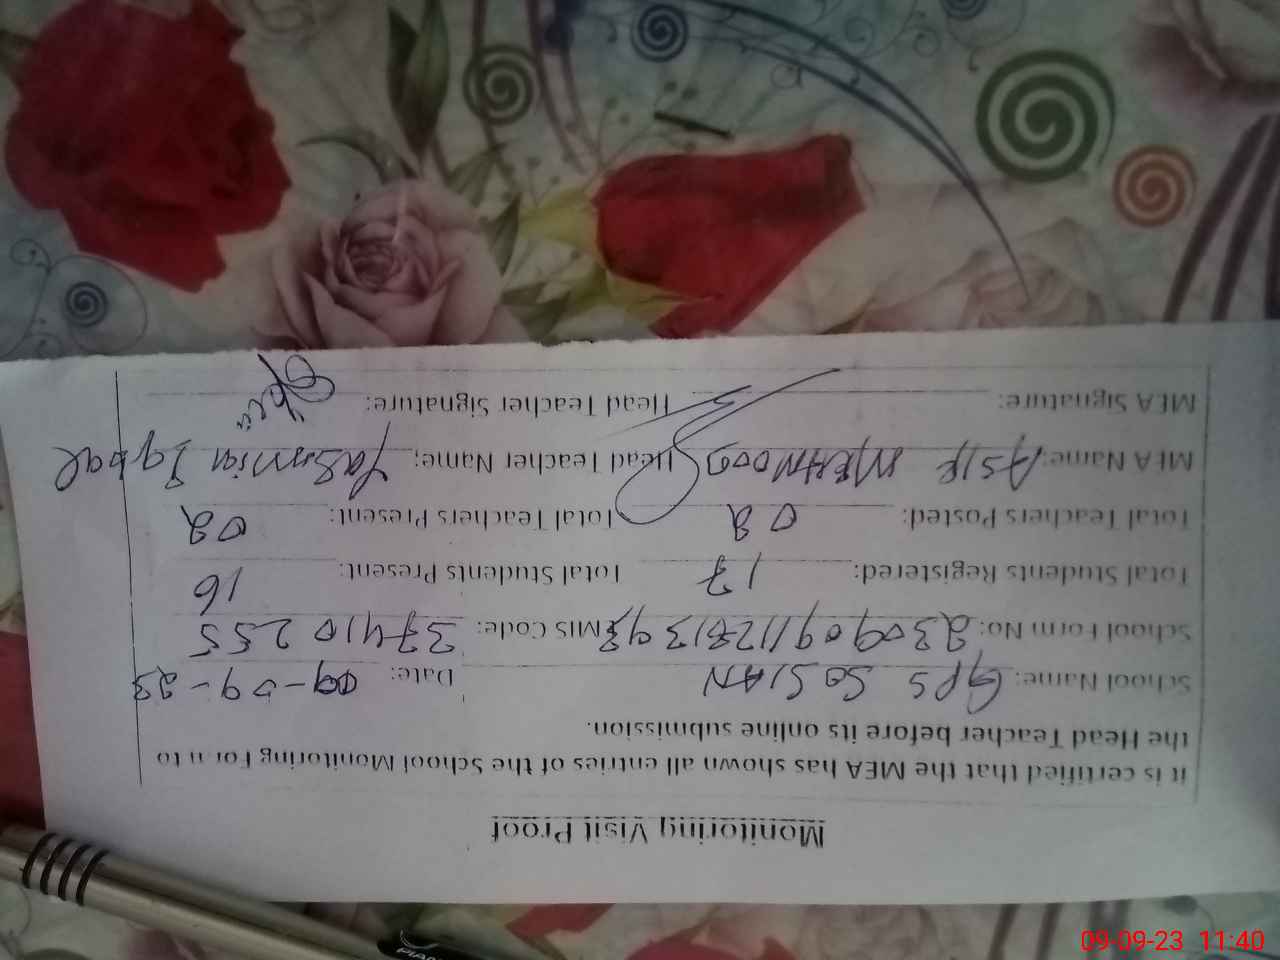 Monitoring Visit Proof
it is certified that the MEA has shown all entries of the School Monitoring Form to
the Head Teacher before its online submission.
School Name: GPS SOSIAN Date: 09-09-23
School Form No: MIS Code: 37410255
Total Students Registered: 17 Total Students Present: 16
Total Teachers Posted: 02 Total Teachers Present: 02
MEA Name: ASIF MEHMOOD Head Teacher Name: Yasmin Iqbal
MEA Signature: Head Teacher Signature:
PIANO
09-09-23 11:40